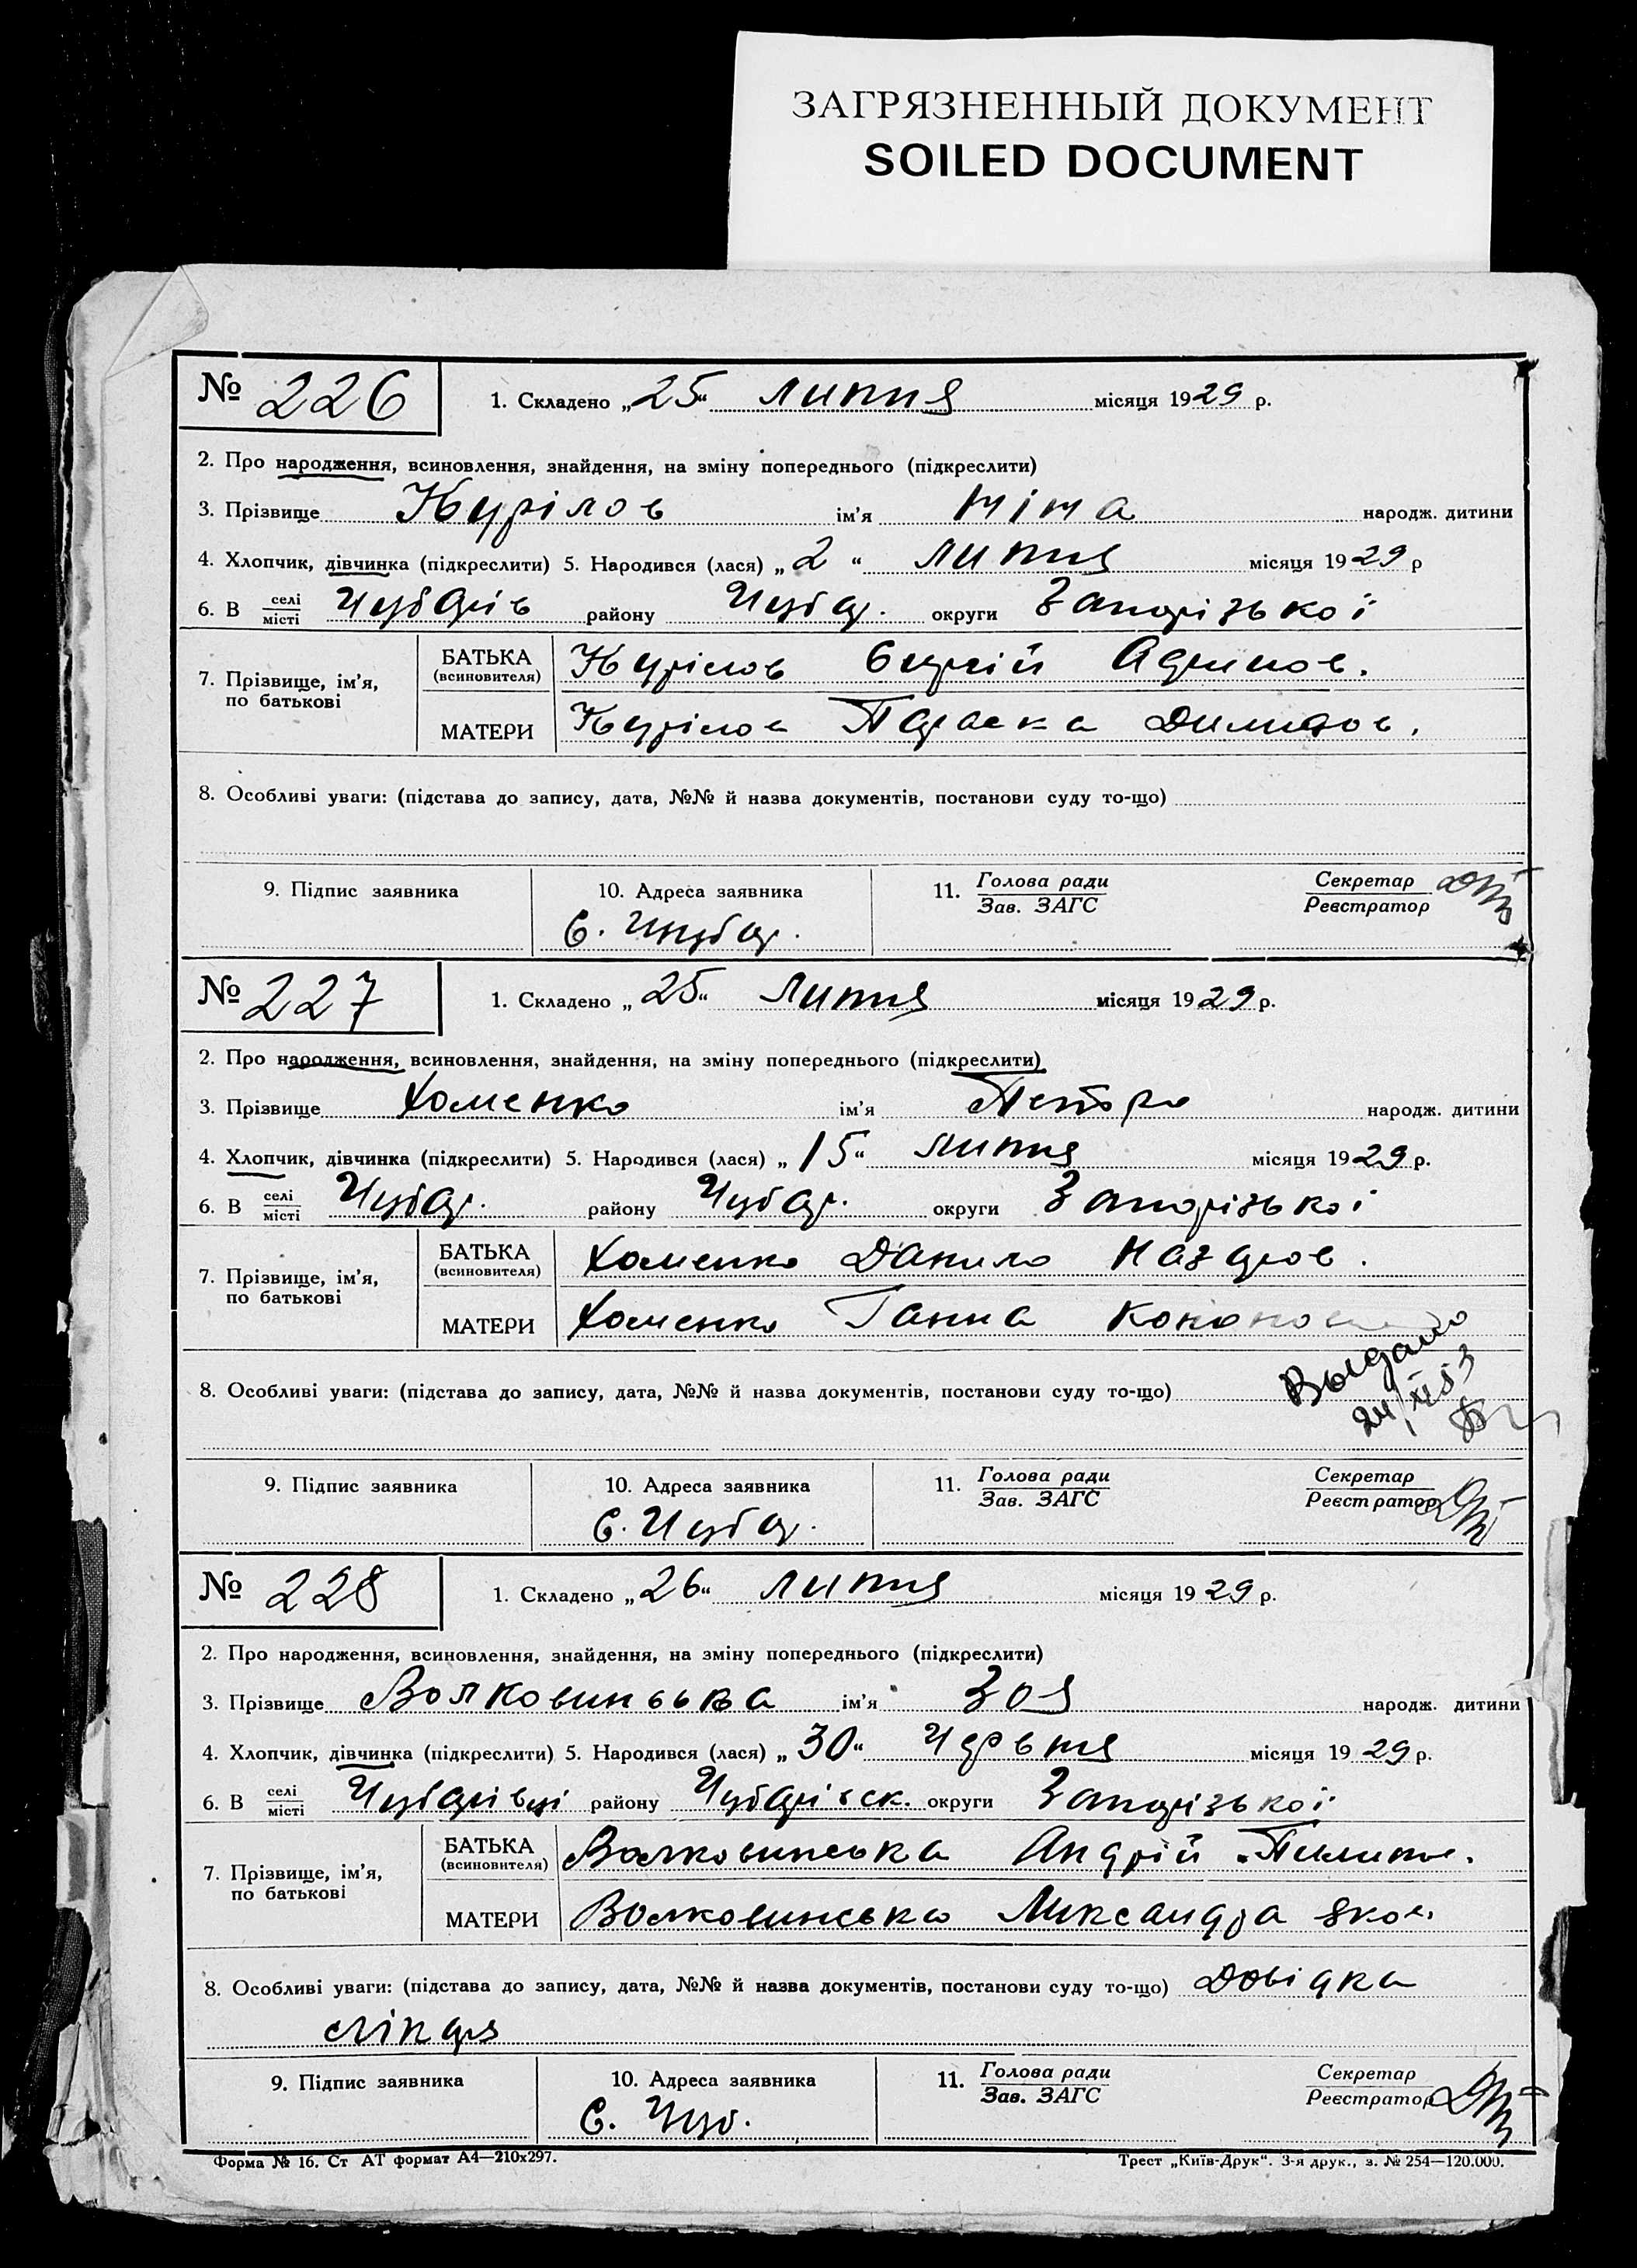 ЗАГРЯЗНЕННЫЙ ДОКУМЕНТ
SOILED DOCUMENT
№ 226
1. Складено „25“ липня місяця 1929 р.
2. Про народження, всиновлення, знайдення, на зміну попереднього (підкреслити)
3. Прізвище Курілов ім’я народж. дитини
4. Хлопчик, дівчинка (підкреслити) 5. Народився (лася) „2“ липня місяця 1929 р
6. В селі місті Чубарів району Чубар. округи Запорізької
7. Прізвище, ім’я, по батькові
БАТЬКА (всиновителя) Курілов Сергій
МАТЕРИ Курілов Параска
8. Особливі уваги: (підстава до запису, дата, №№ й назва документів, постанови суду то-що)
9. Підпис заявника
10. Адреса заявника
С. Чубар.
11. Голова ради Зав. ЗАГС
Секретар Реєстратор
№ 227
1. Складено „25“ липня місяця 1929 р.
2. Про народження, всиновлення, знайдення, на зміну попереднього (підкреслити)
3. Прізвище Хоменко ім’я Петро народж. дитини
4. Хлопчик, дівчинка (підкреслити) 5. Народився (лася) „15“ липня місяця 1929 р.
6. В селі місті Чубар. району Чубар. округи Запорізької
7. Прізвище, ім’я, по батькові
БАТЬКА (всиновителя) Хоменко Данило Назаров.
МАТЕРИ Хоменко Ганна Кононов
8. Особливі уваги: (підстава до запису, дата, №№ й назва документів, постанови суду то-що)
Выдано
9. Підпис заявника
10. Адреса заявника
С. Чубар.
11. Голова ради Зав. ЗАГС
Секретар Реєстратор
№ 228
1. Складено „26“ липня місяця 1929 р.
2. Про народження, всиновлення, знайдення, на зміну попереднього (підкреслити)
3. Прізвище Волковинська ім’я Зоя народж. дитини
4. Хлопчик, дівчинка (підкреслити) 5. Народився (лася) „30“ Червня місяця 1929 р.
6. В селі місті Чубарівці району Чубарівск. округи Запорізької
7. Прізвище, ім’я, по батькові
БАТЬКА (всиновителя) Волковинська Андрій Пилипов.
МАТЕРИ Волковинська Лиександра Яков.
8. Особливі уваги: (підстава до запису, дата, №№ й назва документів, постанови суду то-що) Довідка
лікаря
9. Підпис заявника
10. Адреса заявника
С. Чуб.
11. Голова ради Зав. ЗАГС
Секретар Реєстратор
Форма № 16. Ст АТ формат А4—210х297.
Трест „Київ-Друк“. 3-я друк., з. № 254—120.000.